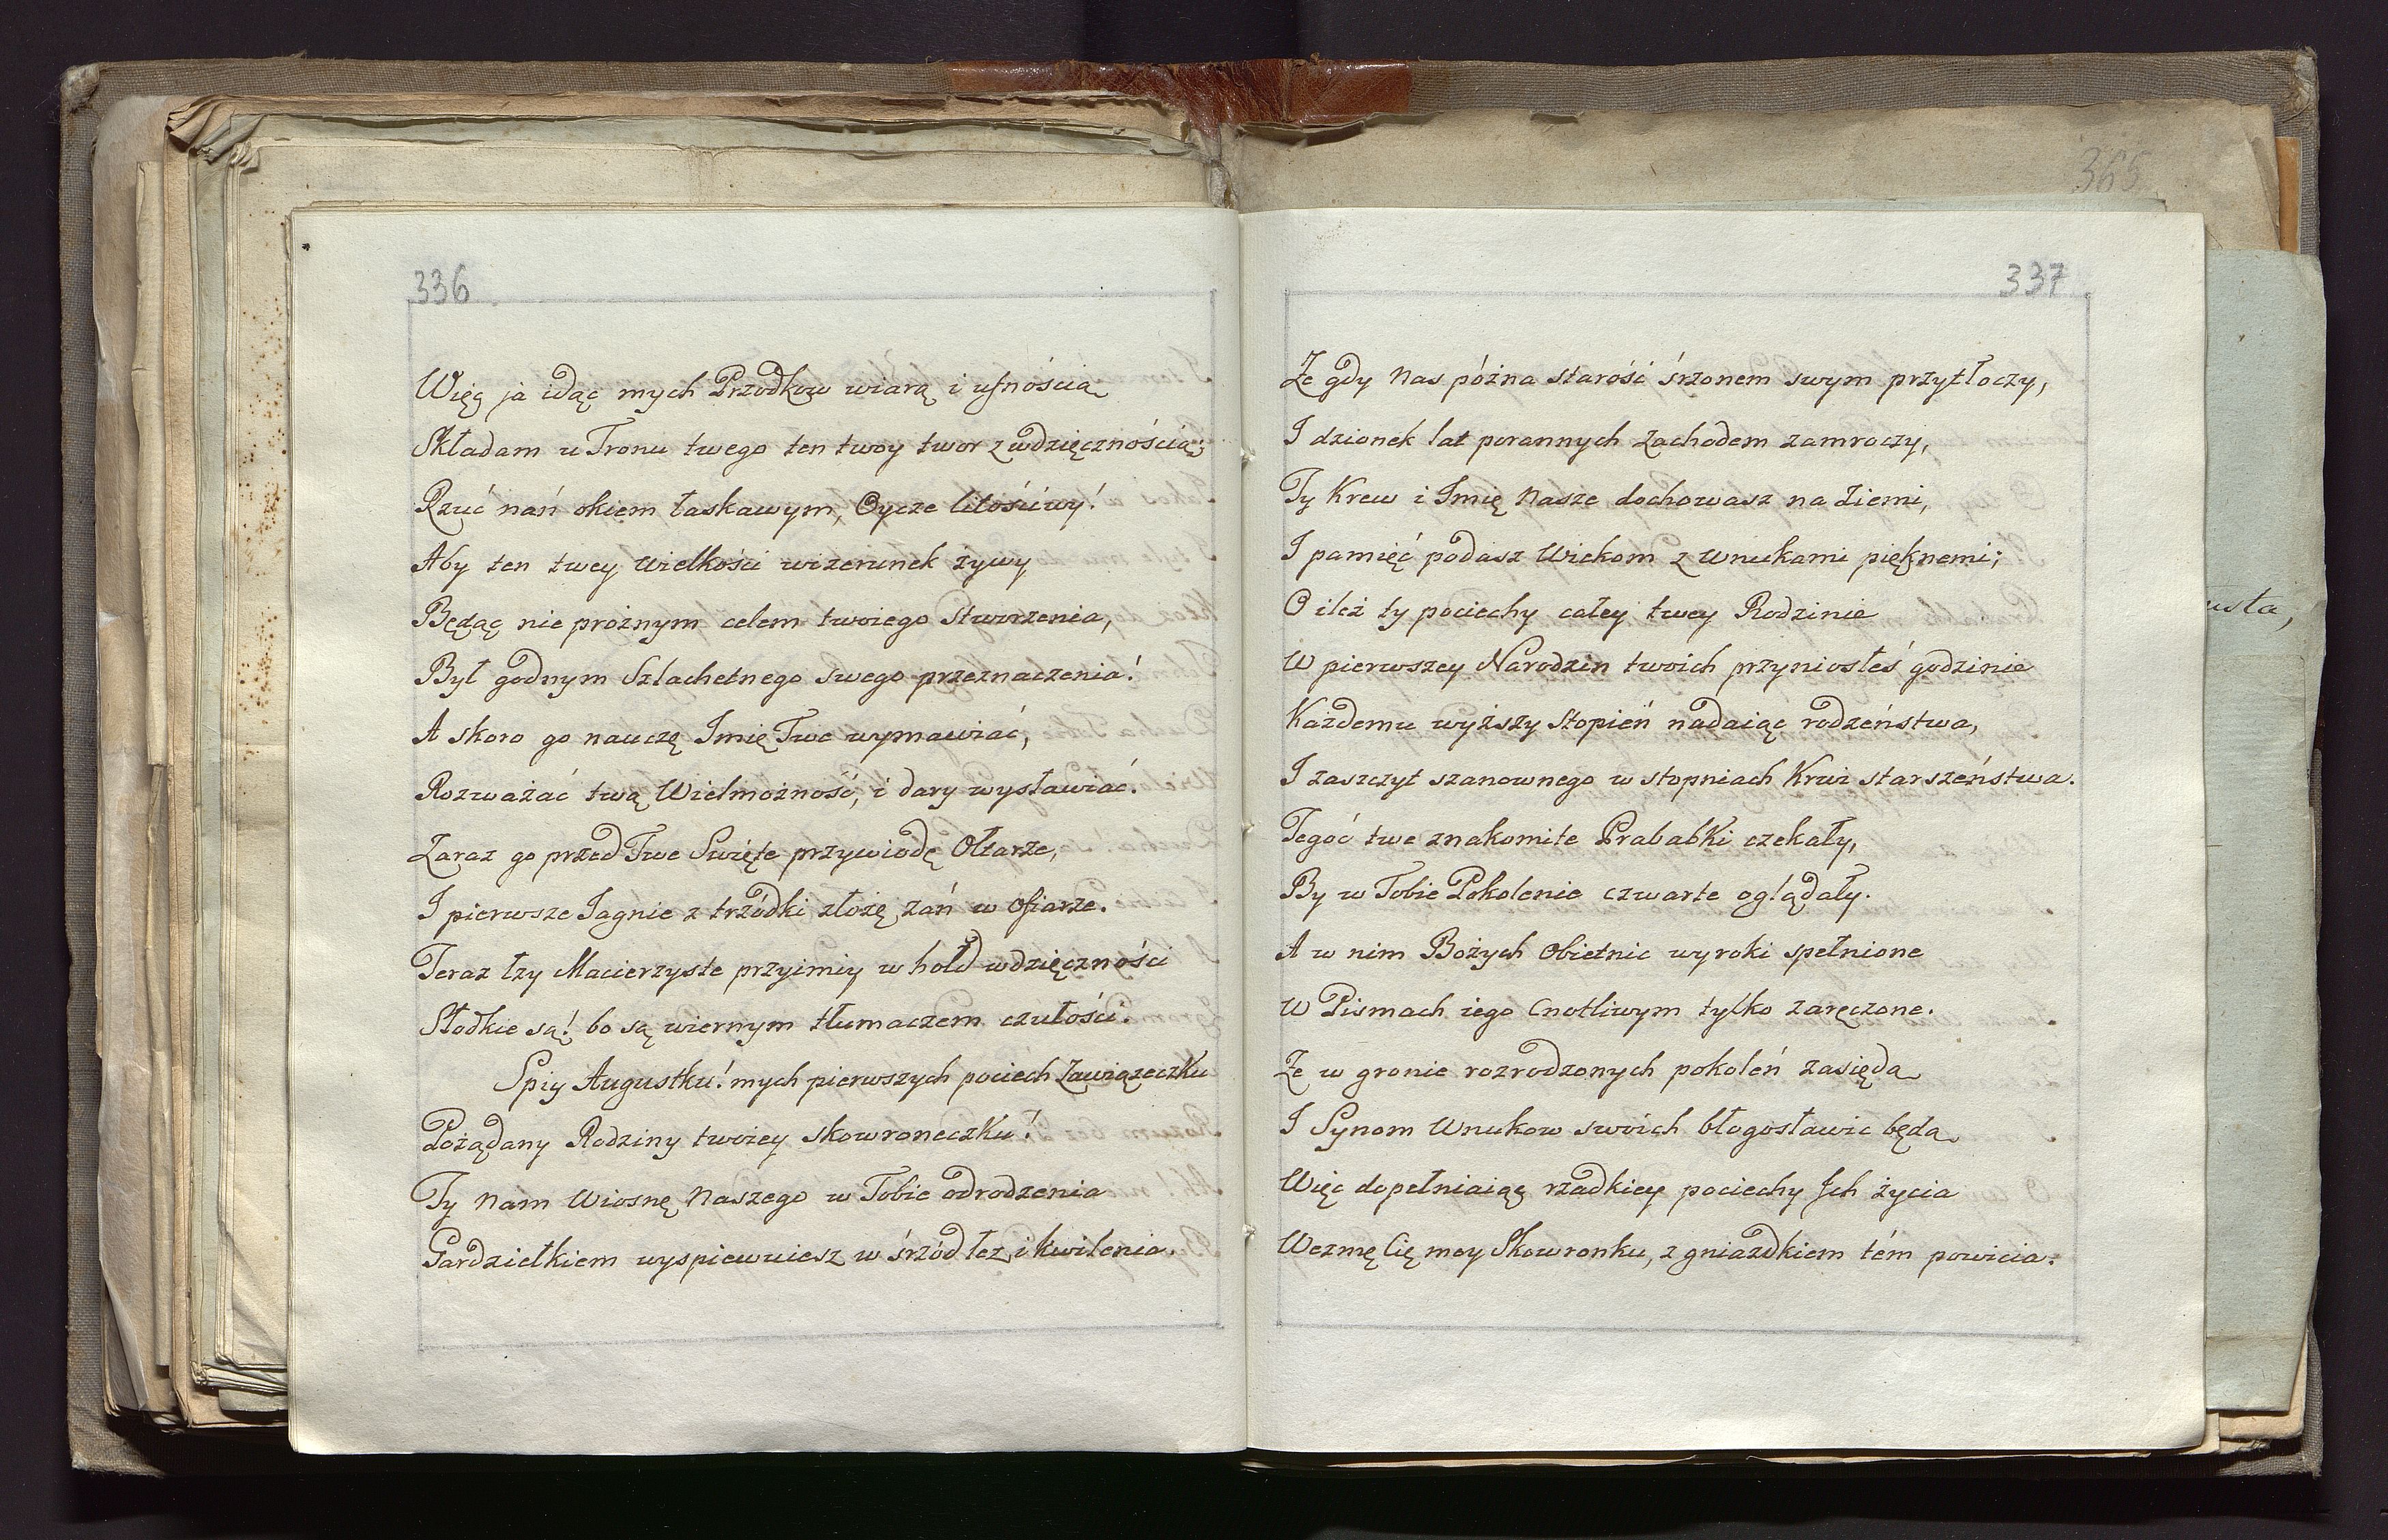 336
Więc ja idąc mych Przodkow wiarą i ufnością
Składam u Tronu twego ten twoy twor z wdzięcznością;
Rzuć nań okiem łaskawym, Oycze litościwy!
Aby ten twey wielkości wizerunek zywy
Będąc nie próżnym celem twoiego stworzenia,
Był godnym Szlachetnego swego przeznaczenia!
A skoro go nauczę Imię Twe wymawiać,
Rozważać twą Wielmożność, i dary wysławiać.
Zaraz go przed Twe Swięte przywiodę Ołtarze,
I pierwsze Jagnie z trzódki złożę zań w ofiarze.
Teraz łzy Macierzyste przyimiy w hołd wdzięczności
Słodkie są! bo są wiernym tłumaczem czułości.
Spiy Augustku! mych pierwszych pociech Zawiązeczku
Pożądany Rodziny twoiey skowroneczku!
Ty Nam Wiosnę Naszego w Tobie odrodzenia
Gardziełkiem wyspiewuiesz w śrzód łez, i kwilenia.
365
337
Że gdy Nas późna starość śrzonem swym przytłoczy,
I dzionek lat porannych zachodem zamroczy,
Ty Krew i Imię Nasze dochowasz na Ziemi,
I pamięć podasz Wiekom z wnukami pięknemi;
O ileż ty pociechy całey twey Rodzinie
W pierwszey Narodzin twoich przyniosłeś godzinie
Każdemu wyższy stopień nadaiąc rodzeństwa,
I zaszczyt szanownego w stopniach Krwi starszeństwa.
Tegoć twe znakomite Prababki czekały,
By w Tobie Pokolenie czwarte oglądały.
A w nim Bożych Obietnic wyroki spełnione
W Pismach iego Cnotliwym tylko zaręczone.
Że w gronie rozrodzonych pokoleń zasiędą
I Synom Wnukow swóich błogosławic będą.
Więc dopełniaiąc rzadkiey pociechy Ich życia
Wezmę Cię moy Skowronku, z gniazdkiem tém powicia.
usta,